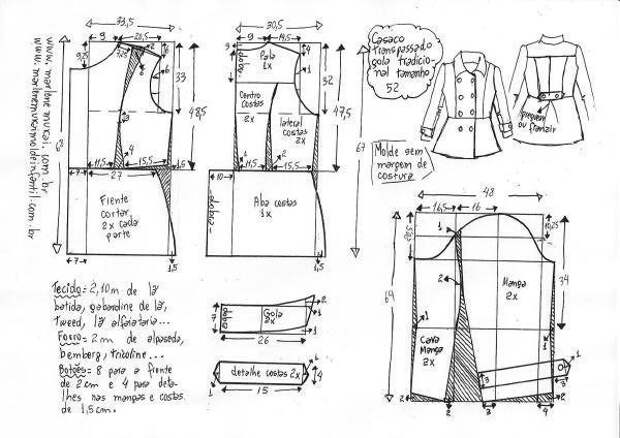 www.marlenemukai.com.br
www.marlenemukaimoldeinfantil.com.br
33,5
9
20,5
2
6
33
48,5
3
4
11,5
15,5
1,5
7
27
Frente
cortar
2x cada
parte
7
1,5
30,5
9
14,5
4
Pala
1x
1
32
47,5
67
Centro
costas
2x
lateral
costas
2x
11,5
2
15,5
10
dobra
Aba costas
1x
1,5
Casaco
transpassado
gola tradicio-
nal tamanho
52
pregueas
ou franzir
Molde sem
margem de
costura
48
16,5
16
1
10,25
2
34
64
Manga
2x
Cava
Manga
2x
1
3
3
2
2
3
4
2
Tecido= 2,10m de lã
batida, gabardine de lã,
Tweed, lã alfaiataria...
Forro= 2m de alpaseda,
bemberg, tricoline...
Botões= 8 para a frente
de 2cm e 4 para deta-
lhes nas mangas e costas
de 1,5cm.
7
dobra
Gola
2x
2
1
26
detalhe costas 2x
4
1
15